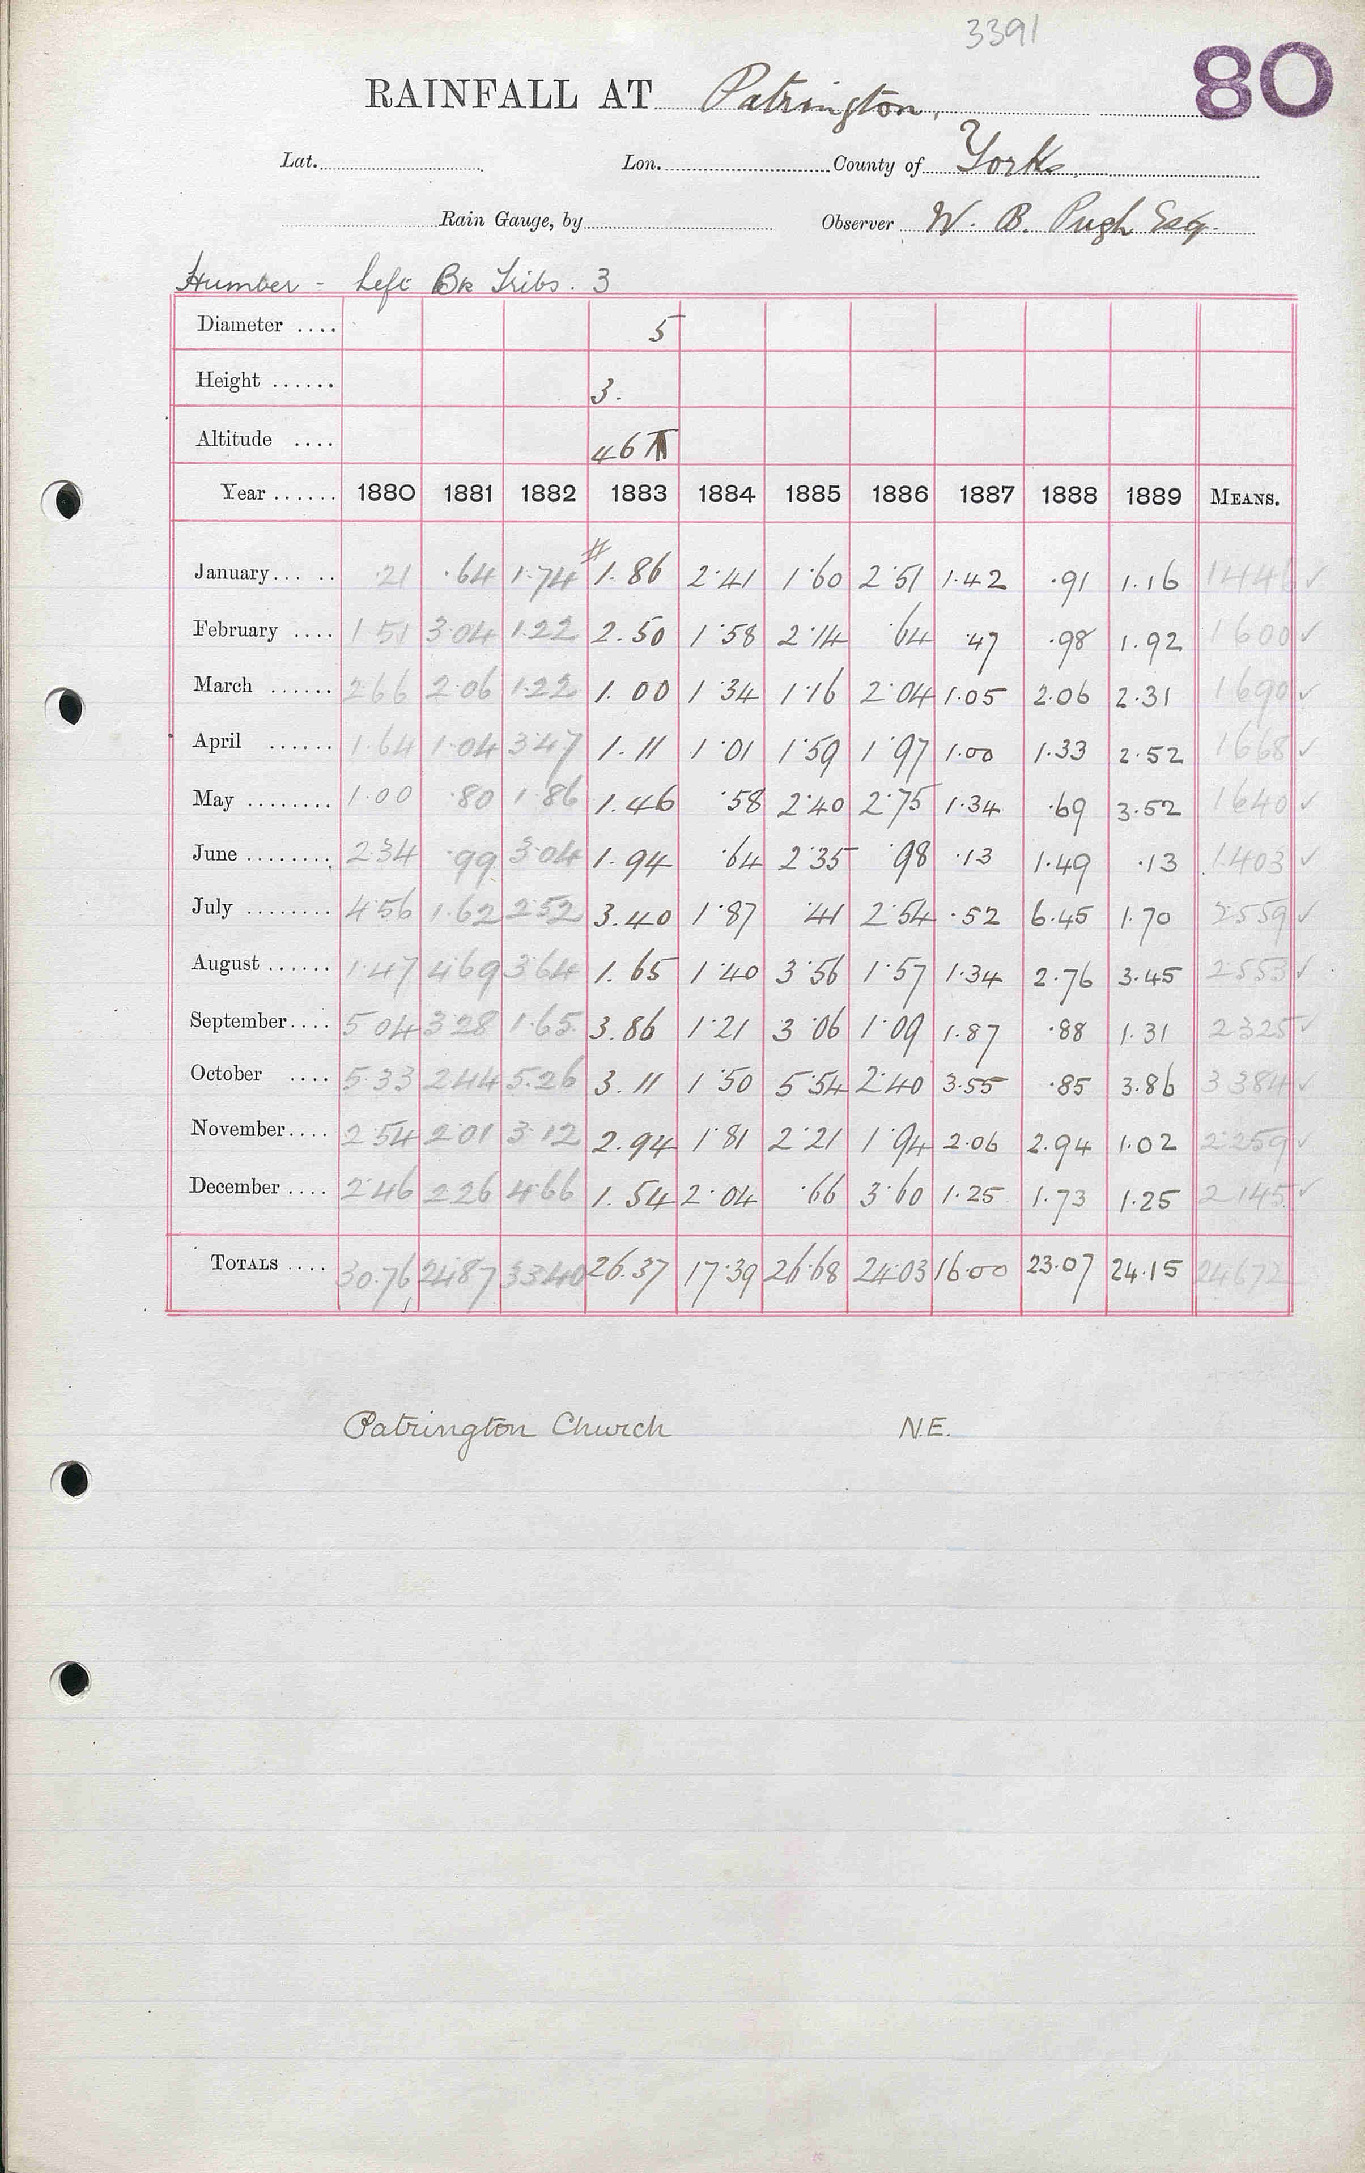 3391
80
RAINFALL AT Patrington.
Lat. Lon. County of York
Rain Gauge, by Observer W. B. Pugh Esq.
Humber - Left Bk Tribs. 3
Diameter .... 5
Height ...... 3.
Altitude .... 46
Year ...... 1880 1881 1882 1883 1884 1885 1886 1887 1888 1889 MEANS.
January... .. .21 .64 1.74 # 1.86 2.41 1.60 2.51 1.42 .91 1.16 1446 ✓
February .... 1.51 3.04 1.22 2.50 1.58 2.14 .64 .47 .98 1.92 1600 ✓
March ...... 2.66 2.06 1.22 1.00 1.34 1.16 2.04 1.05 2.06 2.31 1690 ✓
April ...... 1.64 1.04 3.47 1.11 1.01 1.59 1.97 1.00 1.33 2.52 1668 ✓
May ........ 1.00 .80 1.86 1.46 .58 2.40 2.75 1.34 .69 3.52 1640 ✓
June ........ 2.34 .99 3.04 1.94 .64 2.35 .98 .13 1.49 .13 1403 ✓
July ........ 4.56 1.62 2.52 3.40 1.87 .41 2.54 .52 6.45 1.70 2559 ✓
August ...... 1.47 4.69 3.64 1.65 1.40 3.56 1.57 1.34 2.76 3.45 2553 ✓
September.... 5.04 3.28 1.65 3.86 1.21 3.06 1.09 1.87 .88 1.31 2325 ✓
October .... 5.33 2.44 5.26 3.11 1.50 5.54 2.40 3.55 .85 3.86 3384 ✓
November.... 2.54 2.01 3.12 2.94 1.81 2.21 1.94 2.06 2.94 1.02 2259 ✓
December .... 2.46 2.26 4.66 1.54 2.04 .66 3.60 1.25 1.73 1.25 2145 ✓
TOTALS .... 30.76 24.87 33.40 26.37 17.39 26.68 24.03 16.00 23.07 24.15 24672
Patrington Church N.E.